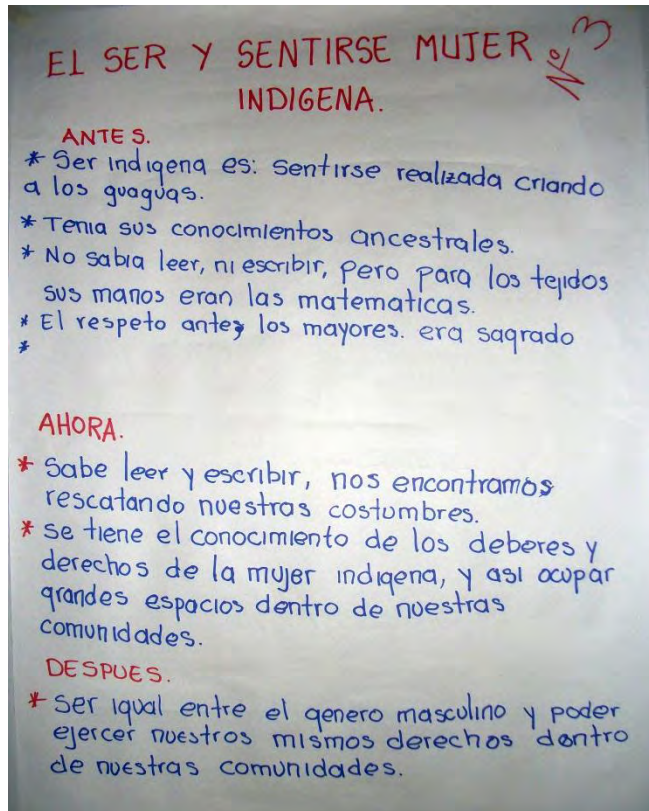 EL SER Y SENTIRSE MUJER Nº 3
INDIGENA.
ANTES.
* Ser indigena es: sentirse realizada criando
a los guaguas.
* Tenia sus conocimientos ancestrales.
* No sabia leer, ni escribir, pero para los tejidos
sus manos eran las matematicas.
* El respeto antes los mayores. era sagrado
*
AHORA.
* Sabe leer y escribir, nos encontramos
rescatando nuestras costumbres.
* se tiene el conocimiento de los deberes y
derechos de la mujer indigena, y asi ocupar
grandes espacios dentro de nuestras
comunidades.
DESPUES.
* Ser igual entre el genero masculino y poder
ejercer nuestros mismos derechos dentro
de nuestras comunidades.